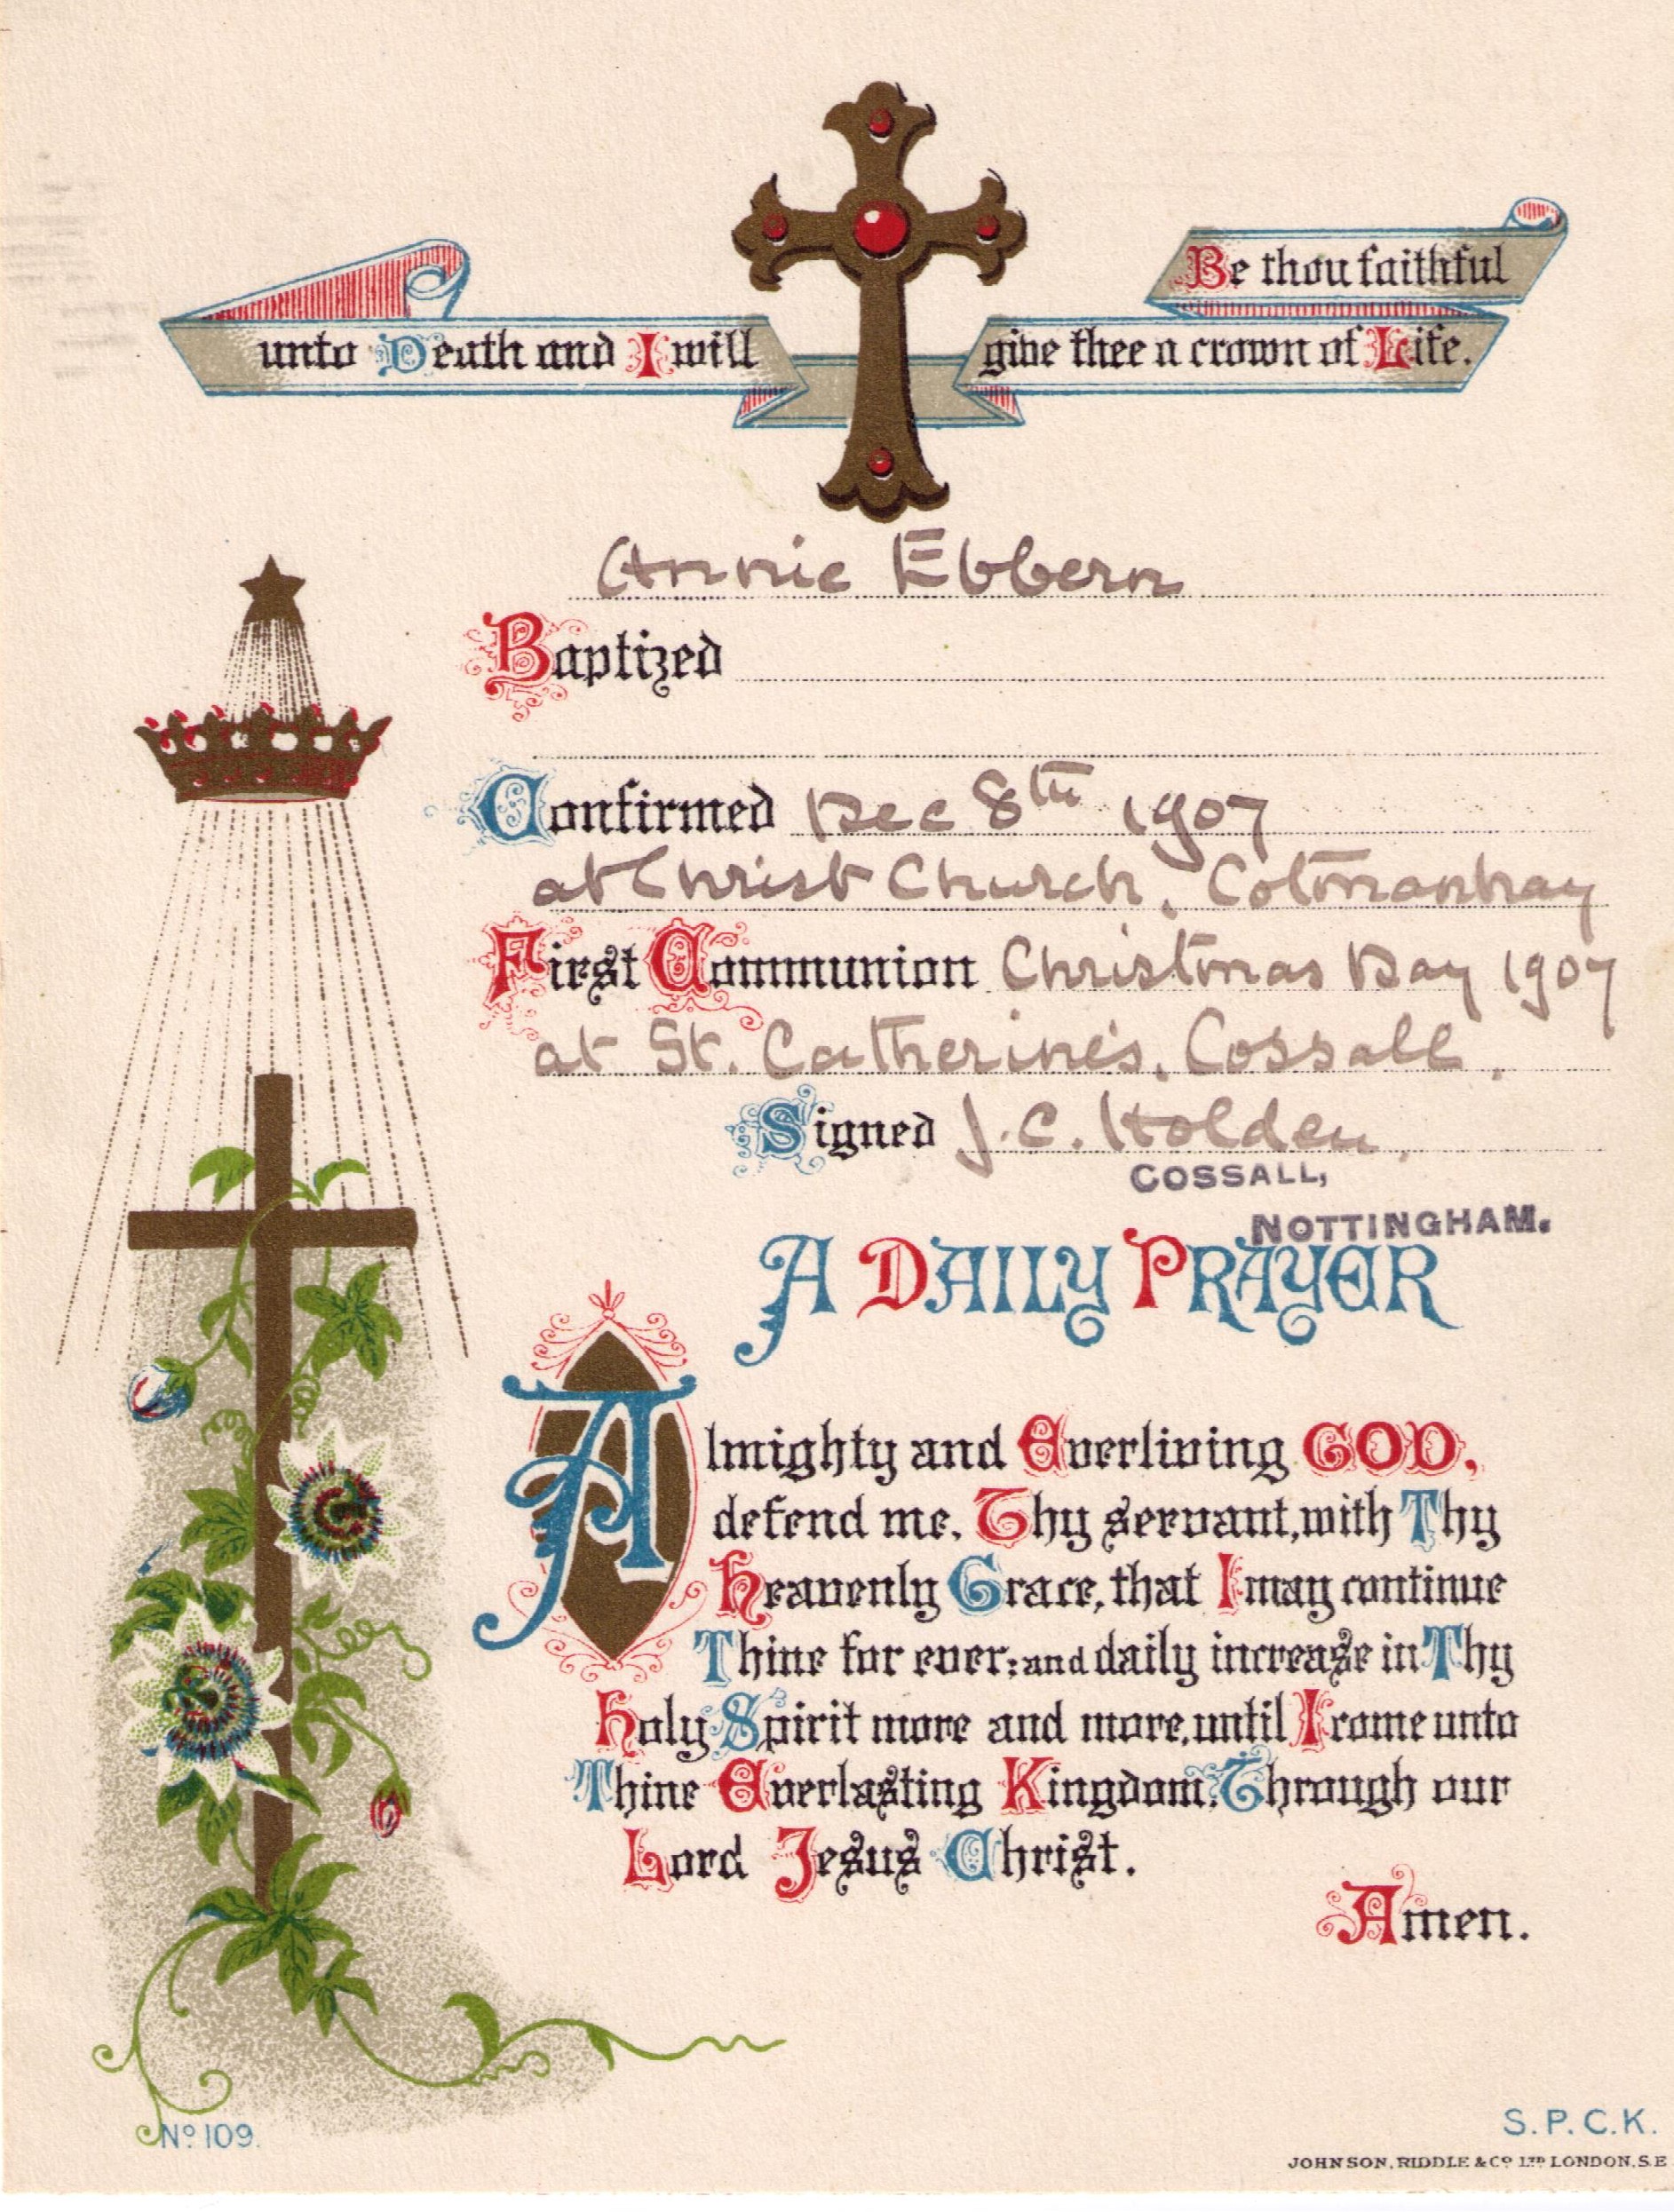 Be thou faithful
unto Death and I will give thee a crown of Life.
Annie Ebbern
Baptized
Confirmed Dec 8th 1907
at Christ Church, Cotmanhay
First Communion Christmas Day 1907
at St. Catherine's, Cossall.
Signed J. C. Holden.
COSSALL,
NOTTINGHAM.
A DAILY PRAYER
Almighty and Everliving GOD,
defend me, Thy servant, with Thy
Heavenly Grace, that I may continue
Thine for ever; and daily increase in Thy
Holy Spirit more and more, until I come unto
Thine Everlasting Kingdom, Through our
Lord Jesus Christ.
Amen.
No 109.
S.P.C.K.
JOHNSON, RIDDLE & Co LTD LONDON, S.E